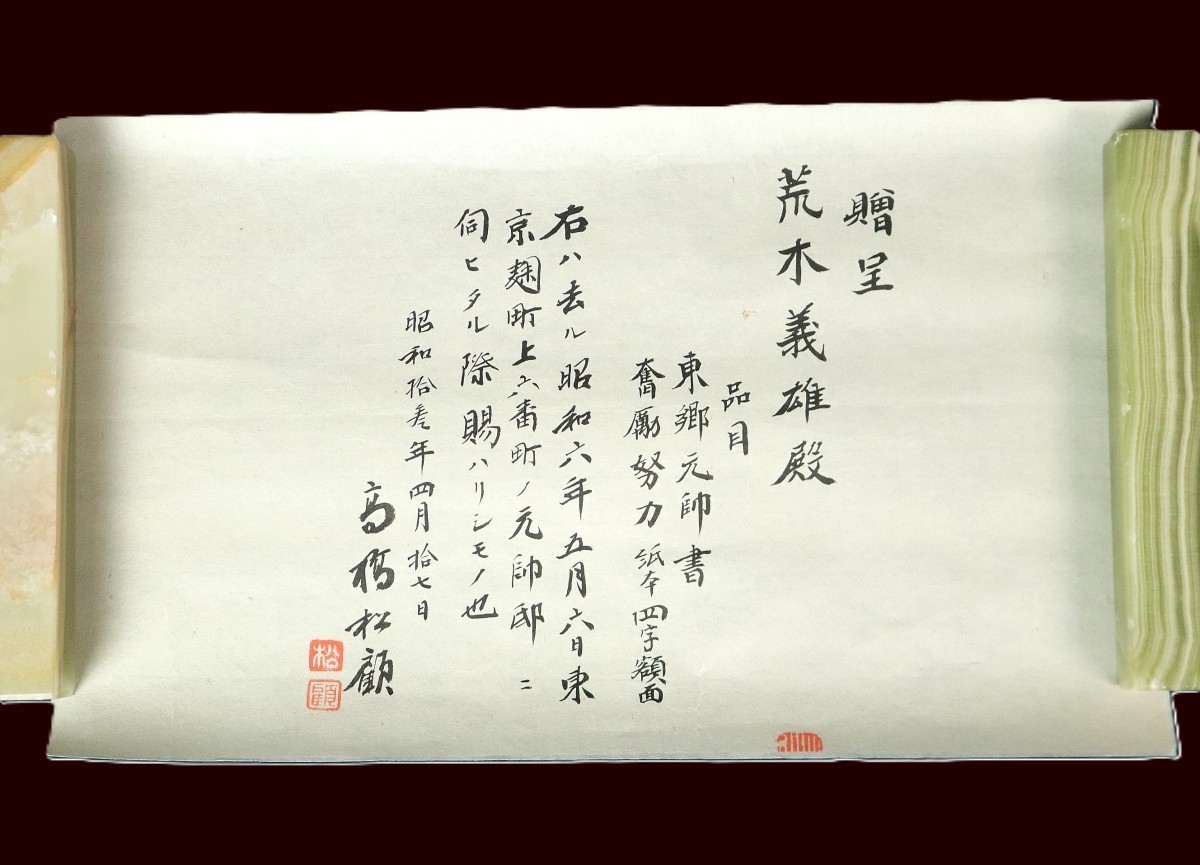 贈呈
荒木義雄殿
品目
東郷元帥書
奮勵努力 紙本 四字額面
右ハ去ル昭和六年五月六日東
京麹町上六番町ノ元帥邸ニ
伺ヒタル際賜ハリシモノ也
昭和拾叁年四月拾七日
高橋松顧
松
顧